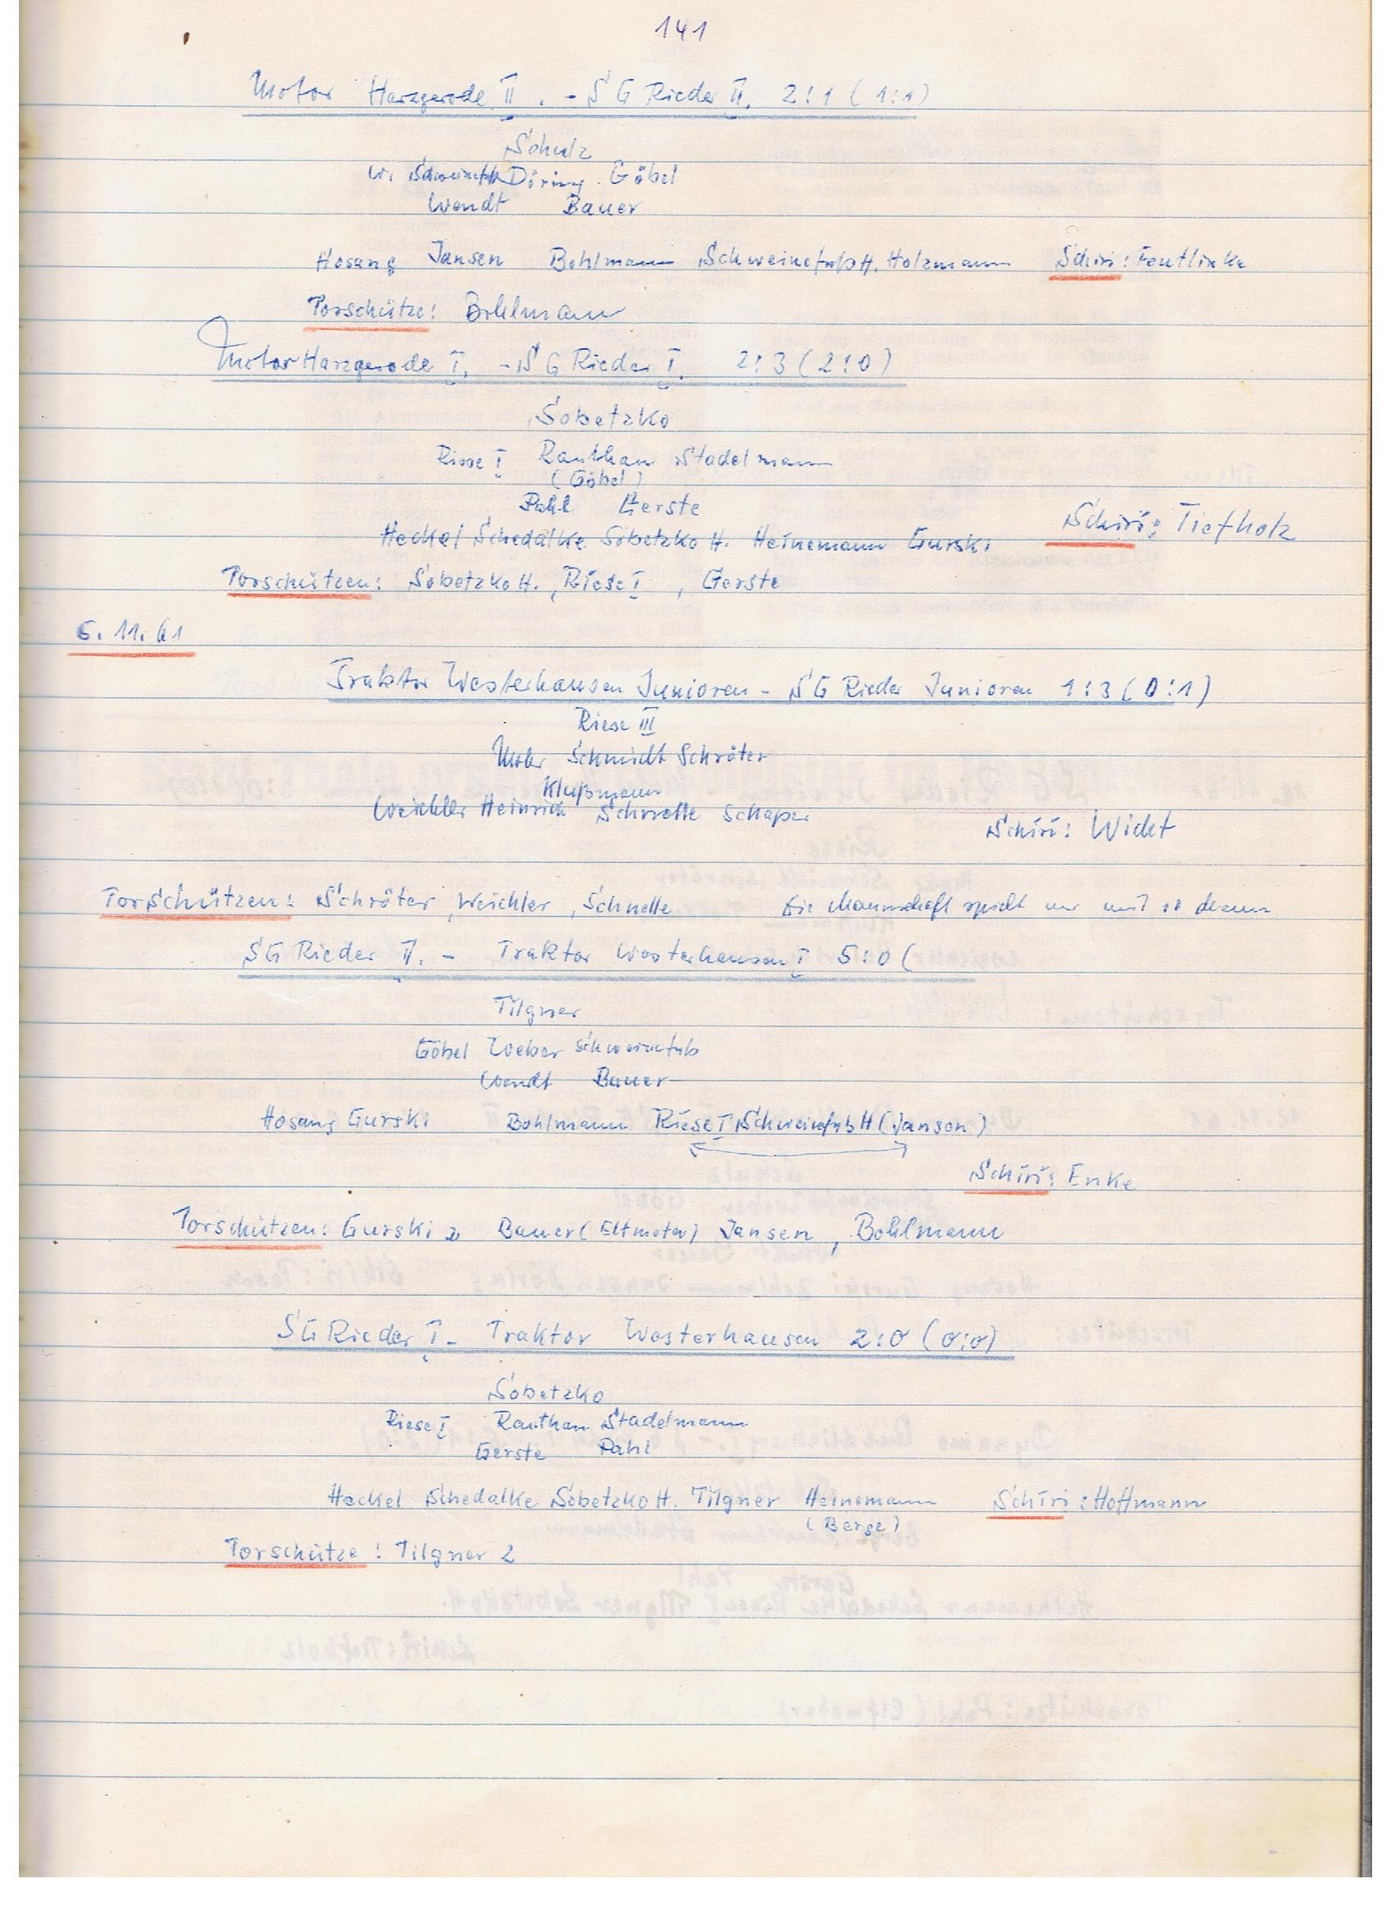 141
Motor Harzgerode II. - SG Rieder II. 2:1 (1:1)
Schulz
W. Schweinefuß Döring Göbel
Wendt Bauer
Hosang Jansen Bohlmann Schweinefuß H. Holzmann Schiri: Feutlinke
Torschütze: Bohlmann
Motor Harzgerode I. - SG Rieder I. 2:3 (2:0)
Sobetzko
Riese I Rauthan Stadelmann
(Göbel)
Pahl Gerste
Heckel Schedalke Sobetzko H. Heinemann Gurski
Schiri: Tiefholz
Torschützen: Sobetzko H., Riese I, Gerste
5. 11. 61
Traktor Westerhausen Junioren - SG Rieder Junioren 1:3 (0:1)
Riese III
Schmidt Schröter
Klußmann
Weichler Heinrich Schnelle Schaper
Schiri: Wicht
Torschützen: Schröter, Weichler, Schnelle Die Mannschaft spielt nur mit 10
SG Rieder II. - Traktor Westerhausen I 5:0 (
Tilgner
Göbel Weber Schweinefuß
Wendt Bauer
Hosang Gurski Bohlmann Riese I Schweinefuß H (Jansen)
Schiri: Enke
Torschützen: Gurski 2 Bauer (Elfmeter) Jansen, Bohlmann
SG Rieder I - Traktor Westerhausen 2:0 (0:0)
Sobetzko
Riese I Rauthan Stadelmann
Gerste Pahl
Heckel Schedalke Sobetzko H. Tilgner Heinemann Schiri: Hoffmann
(Berge)
Torschütze: Tilgner 2